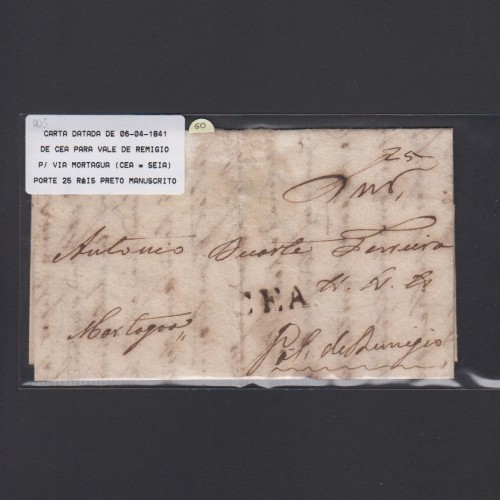 005
CARTA DATADA DE 06-04-1841
DE CEA PARA VALE DE REMIGIO
P/ VIA MORTAGUA (CEA = SEIA)
PORTE 25 RÉIS PRETO MANUSCRITO
60
25
Antonio Duarte Ferreira
CEA
Mortagoa
de Remigio